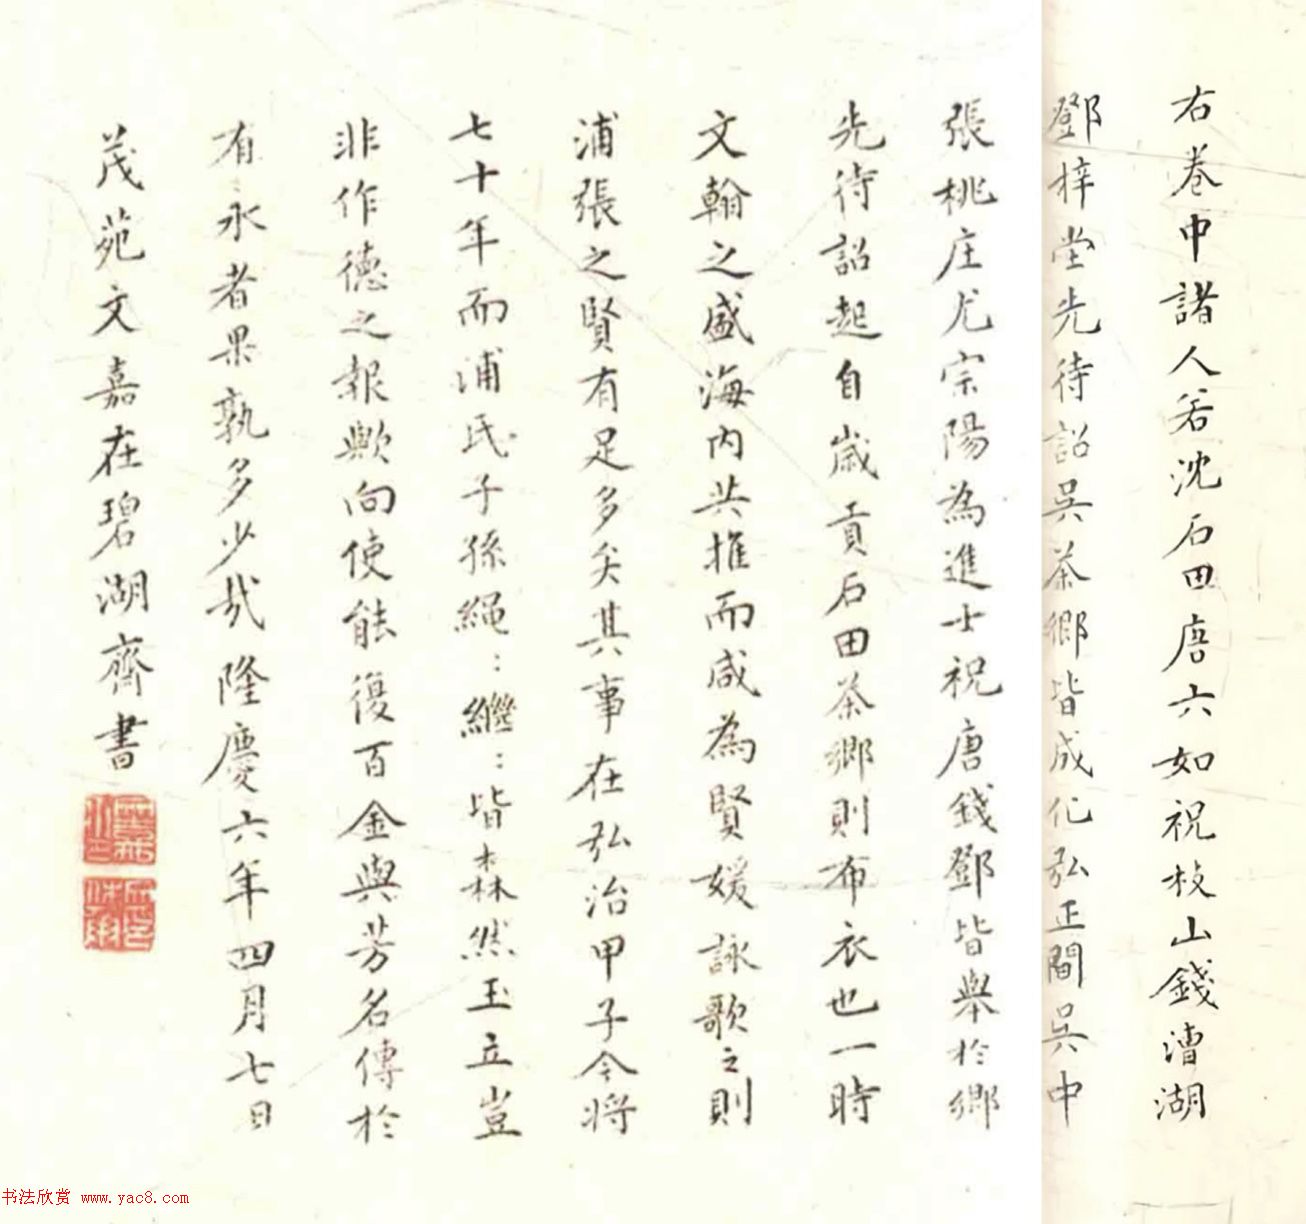 右卷中諸人若沈石田唐六如祝枝山錢漕湖
鄧梓堂先待詔吳茶鄉皆成化弘正間吳中
張桃庄尤宗陽為進士祝唐錢鄧皆舉於鄉
先待詔起自歲貢石田茶鄉則布衣也一時
文翰之盛海內共推而咸為賢媛詠歌之則
浦張之賢有足多矣其事在弘治甲子今將
七十年而浦氏子孫繩：繼：皆森然玉立豈
非作德之報歟向使能復百金與芳名傳於
有永者果孰多少哉隆慶六年四月七日
茂苑文嘉在碧湖齋書
书法欣赏 www.yac8.com